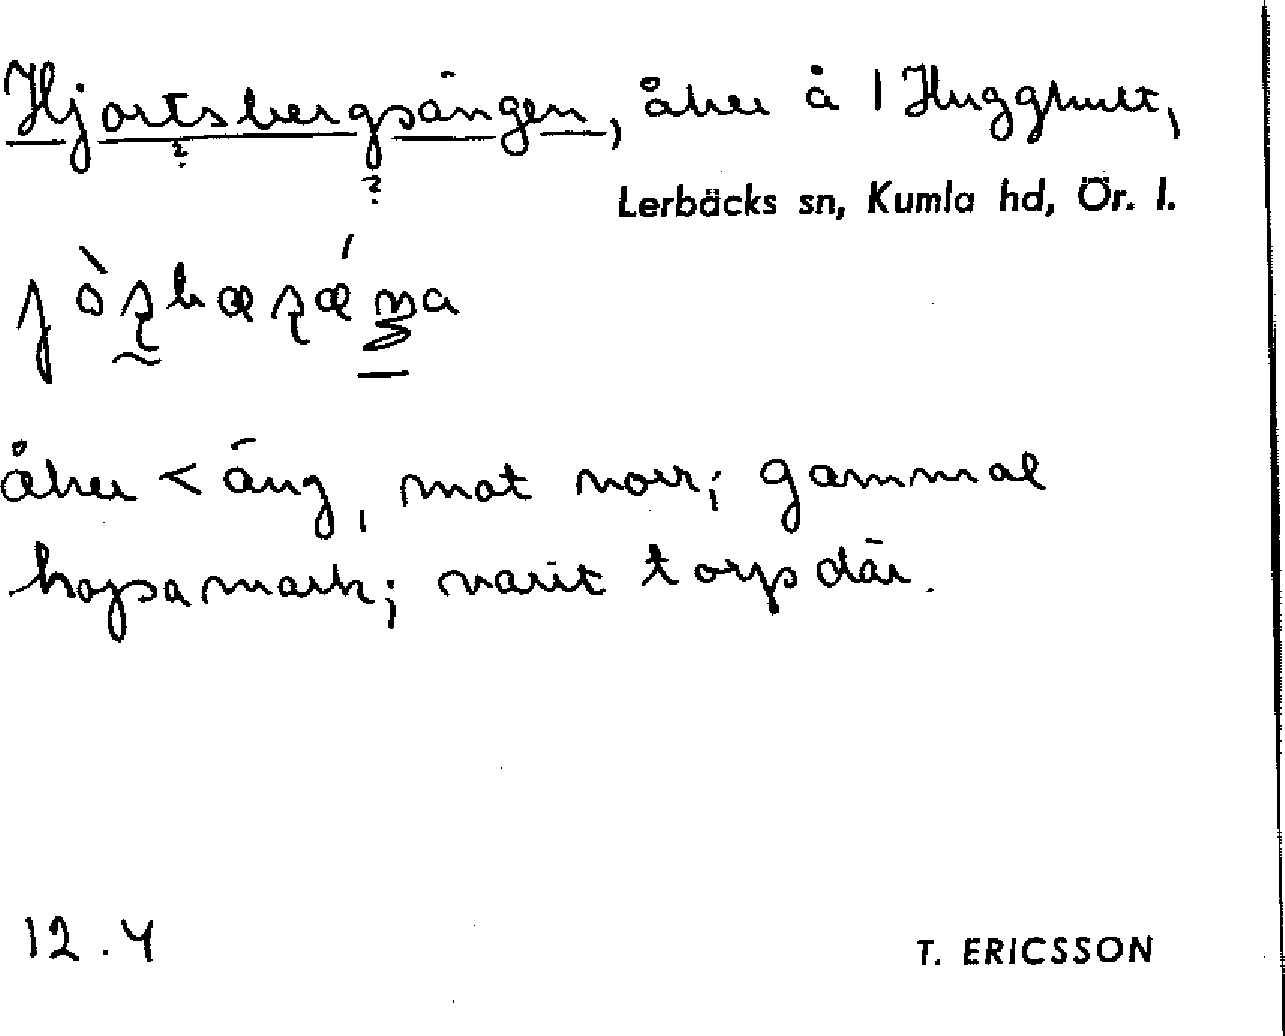 Hjortsbergsängen, åker å 1 Hugghult,
? ?
Lerbäcks sn, Kumla hd, Ör. l.
åker < äng, mot norr; gammal
hopsamark; varit torp där.
12.4
T. ERICSSON